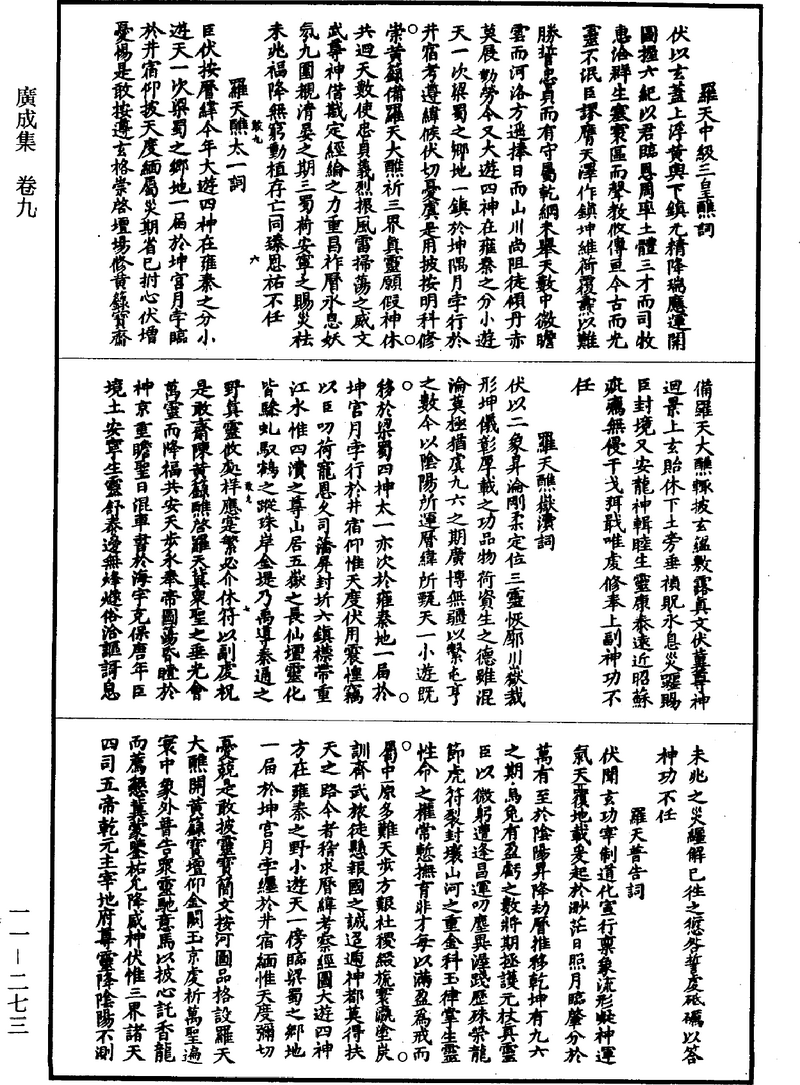 廣成集　卷九
羅天中級三皇醮詞
伏以玄蓋上浮黃輿下鎮元精降瑞應運開
圖握六紀以君臨恩周率土體三才而司牧
惠洽群生靈寰區而聲教攸傳亘今古而光
靈不泯臣謬膺天澤作鎮坤維荷覆燾以難
勝誓忠貞而有守屬乾綱未舉天數中微瞻
雲而河洛方遥捧日而山川尚阻徒傾丹赤
莫展勤勞今又大遊四神在雍秦之分小遊
天一次梁蜀之鄉地一鎮於坤隅月孛行於
井宿考遵緯候伏切憂虞是用披按明科修
崇黃籙備羅天大醮祈三界真靈願假神休
共迴天數使忠貞義烈振風雷掃蕩之威文
武尊神借戡定經綸之力重昌祚曆永息妖
氛九圍覩清晏之期三蜀荷安寧之賜災祛
未兆福降無窮動植存亡同臻恩祐不任
羅天醮太一詞
臣伏按曆緯今年大遊四神在雍秦之分小
遊天一次梁蜀之鄉地一屆於坤宫月孛臨
於井宿仰披天度緬屬災期省已拊心伏增
憂惕是敢按遵玄格崇啓壇場修黃籙寶齋
備羅天大醮輙披玄蘊敷露真文伏冀尊神
迴景上玄貽休下土旁垂禎貺永息災躔賜
臣封境又安龍神輯睦生靈康泰遠近昭蘇
疵癘無侵干戈弭戢唯虔修奉上副神功不
任
羅天醮嶽瀆詞
伏以二象昇淪剛柔定位三靈恢廓川嶽裁
形坤儀彰厚載之功品物荷資生之德雖混
淪莫極猶虞九六之期廣博無疆以繫屯亨
之數今以陰陽所運曆緯所甄天一小遊既
移於梁蜀四神太一亦次於雍秦地一屆於
坤宫月孛行於井宿仰惟天度伏用震惶竊
以臣叨荷寵恩久司藩屏封圻六鎮襟帶重
江水惟四瀆之尊山居五嶽之長仙壇靈化
皆驂虬馭鶴之蹤珠岸金堤乃禹導秦通之
野真靈攸處祥應寔繁必介休符以副虔祝
是敢齋陳黃籙醮啓羅天冀衆聖之垂光會
萬靈而降福共安天步永奉帝圖蕩昏曀於
神京重瞻聖日混車書於海宇克保唐年臣
境土安寧生靈舒泰邊無烽燧俗洽謳謌息
未兆之災纏解已往之愆咎誓虔砥礪以答
神功不任
羅天普告詞
伏聞玄功宰制道化宣行稟象流形凝神運
氣天覆地載爰起於渺茫日照月臨肇分於
萬有至於陰陽昇降劫曆推移乾坤有九六
之期烏兔有盈虧之數將期極護元杖真靈
臣以微躬遭逢昌運叨塵異渥踐歷殊榮龍
節虎符裂封壤山河之重金科玉律掌生靈
性命之權常慙撫育非才每以滿盈爲戒而
屬中原多難天步方艱社稷綴旒寰瀛塗炭
訓齊武旅徒懸報國之誠迢遞神都莫得扶
天之路今者稽求曆緯考察經圖大遊四神
方在雍秦之野小遊天一傍臨梁蜀之鄉地
一屆於坤宫月孛纏於井宿緬惟天度彌切
憂兢是敢披靈寶簡文按河圖品格設羅天
大醮開黃籙寶壇仰金闕玉京虔祈萬聖遍
寰中象外普告衆靈馳意馬以披心託香龍
而薦懇冀蒙鑒祐允降威神伏惟三界諸天
四司五帝乾元主宰地府尊靈降陰陽不測
一一—二七三